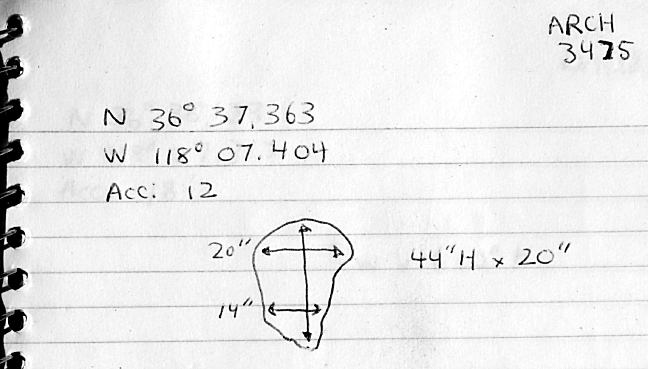 ARCH
3475
N 36° 37.363
W 118° 07.404
Acc: 12
20"
44"H x 20"
14"